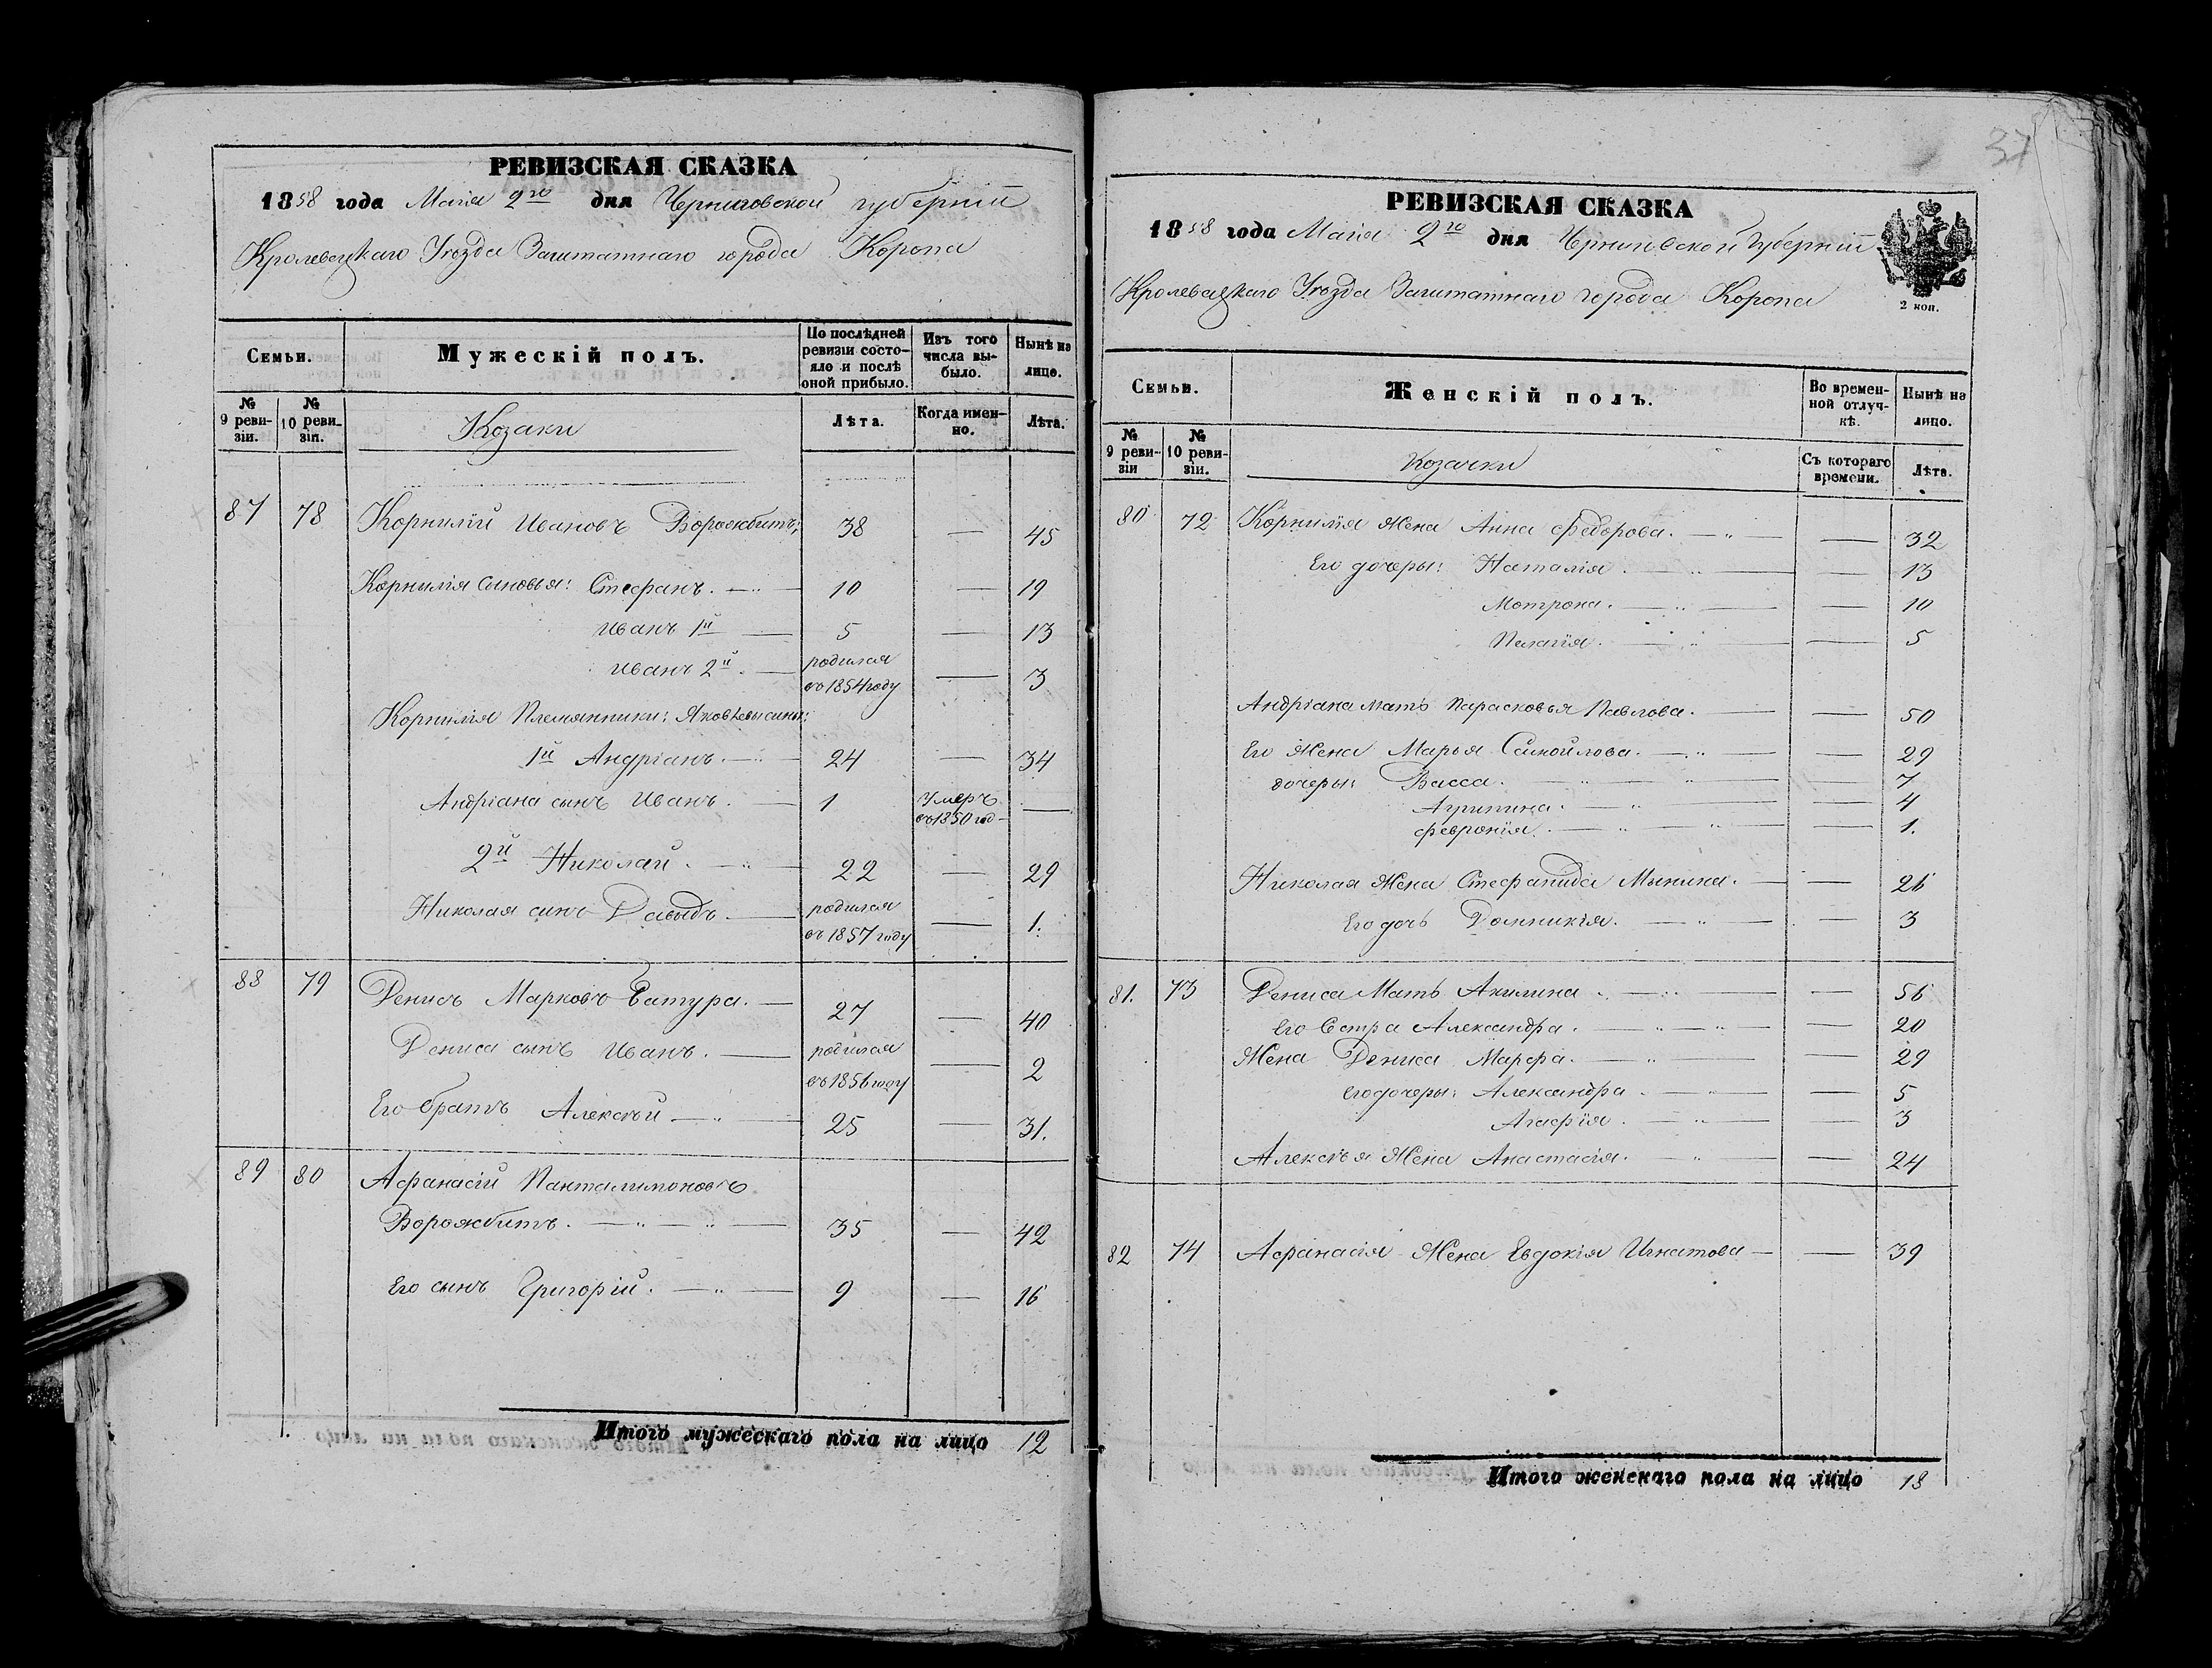 РЕВИЗСКАЯ СКАЗКА
1858 года Маія 2го дня Черниговской губерніи
Кролевецкаго Уѣзда Заштатнаго города Коропа
Семьи. Мужескій полъ. По послѣдней ревизіи состояло и послѣ оной прибыло. Изъ того числа выбыло. Нынѣ на лицо.
№ 9 ревизіи. № 10 ревизіи. Козаки Лѣта. Когда именно. Лѣта.
87 78 Корнилій Ивановъ Ворожбитъ; 38 — 45
Корнилія сыновья: Стефанъ. — 10 — 19
Иванъ 1й — 5 — 13
Иванъ 2й. — родился въ 1854 году — 3
Корнилія Племянники: Яковлевы сыны:
1й Андріанъ. — 24 — 34
Андріана сынъ Иванъ. — 1 Умеръ въ 1850 год— —
2й Николай. — 22 — 29
Николая сынъ Давыдъ. — родился въ 1857 году — 1.
88 79 Денисъ Марковъ Батура. — 27 — 40
Дениса сынъ Иванъ. — родился въ 1856 году — 2
Его братъ Алексѣй — 25 — 31.
89 80 Афанасій Панталимоновъ
Ворожбитъ. — 35 — 42
Его сынъ Григорій. — 9 — 16
Итого мужескаго пола на лицо 12
37
РЕВИЗСКАЯ СКАЗКА
1858 года Маія 2го дня Черниговской Губерніи
Кролевецкаго Уѣзда Заштатнаго города Коропа
2 коп.
Семьи. Женскій полъ. Во временной отлучкѣ. Нынѣ на лицо.
№ 9 ревизіи № 10 ревизіи. Козачки Съ котораго времени. Лѣта.
80 72 Корнилія Жена Анна Федорова. — — 32
Его дочеры: Наталія. — — 13
Мотрона. — — 10
Пелагія. — — 5
Андріана мать Парасковья Павлова. — — 50
Его Жена Марья Самойлова. — — 29
дочеры: Васса. — — 7
Агрипина. — — 4
Февронія. — — 1.
Николая Жена Стефанида Мынина. — — 26
Его дочь Домникія. — — 3
81. 73 Дениса Мать Акилина. — — 56
Его Сестра Александра. — — 20
Жена Дениса Марфа. — — 29
Его дочеры: Александра. — — 5
Агафія. — — 3
Алексѣя Жена Анастасія. — — 24
82 74 Афанасія Жена Евдокія Игнатова — — 39
Итого женскаго пола на лицо 18